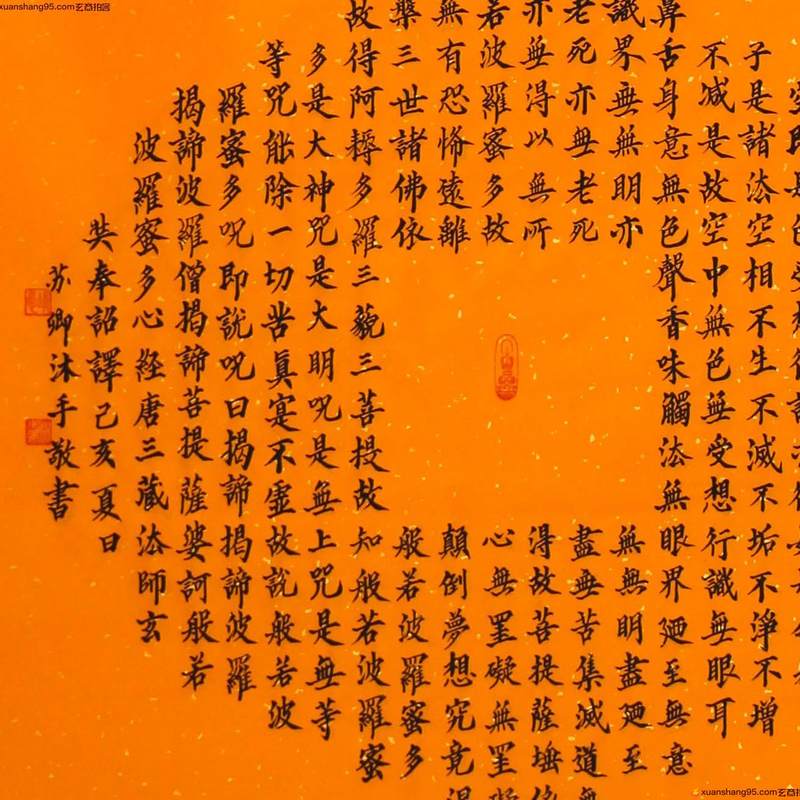 xuanshang95.com玄商拍客
子是諸法空相不生不滅不垢不淨不增
不減是故空中無色無受想行識無眼耳
鼻舌身意無色聲香味觸法無眼界廼至無意
識界無無明亦無無明盡廼至
老死亦無老死盡無苦集滅道無
亦無得以無所得故菩提薩埵依
若波羅蜜多故心無罣礙無罣礙
無有恐怖遠離顛倒夢想究竟涅
槃三世諸佛依般若波羅蜜多
故得阿耨多羅三藐三菩提故知般若波羅蜜
多是大神咒是大明咒是無上咒是無等
等咒能除一切苦真寔不虛故說般若波
羅蜜多呪即說呪曰揭諦揭諦波羅
揭諦波羅僧揭諦菩提薩婆訶般若
波羅蜜多心經唐三藏法師玄
奘奉詔譯己亥夏日
苏卿沐手敬書
xuanshang95.com玄商拍